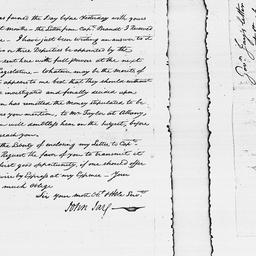 was favored the Day before Yesterday with yours
t month — the Letter from Capt. Brandt I Received
— I have just been writing an answer to it
or three Deputies be appointed by the
sent here with full powers at the next
Legislature — Whatever may be the merits of
it appears to me best that they should without
be investigated and finally decided upon
has remitted the money stipulated to be
you mention, to Mr. Taylor at Albany,
will doubtless hear on the subject, before
reach you.
the Liberty of enclosing my Letter to Capt.
Request the favor of you to transmit it
first good opportunity, if one should offer
by Express at my Expence — Your
much oblige
Sir Your most Obt. & Hble Servt.
John Jay
Jay's Letter